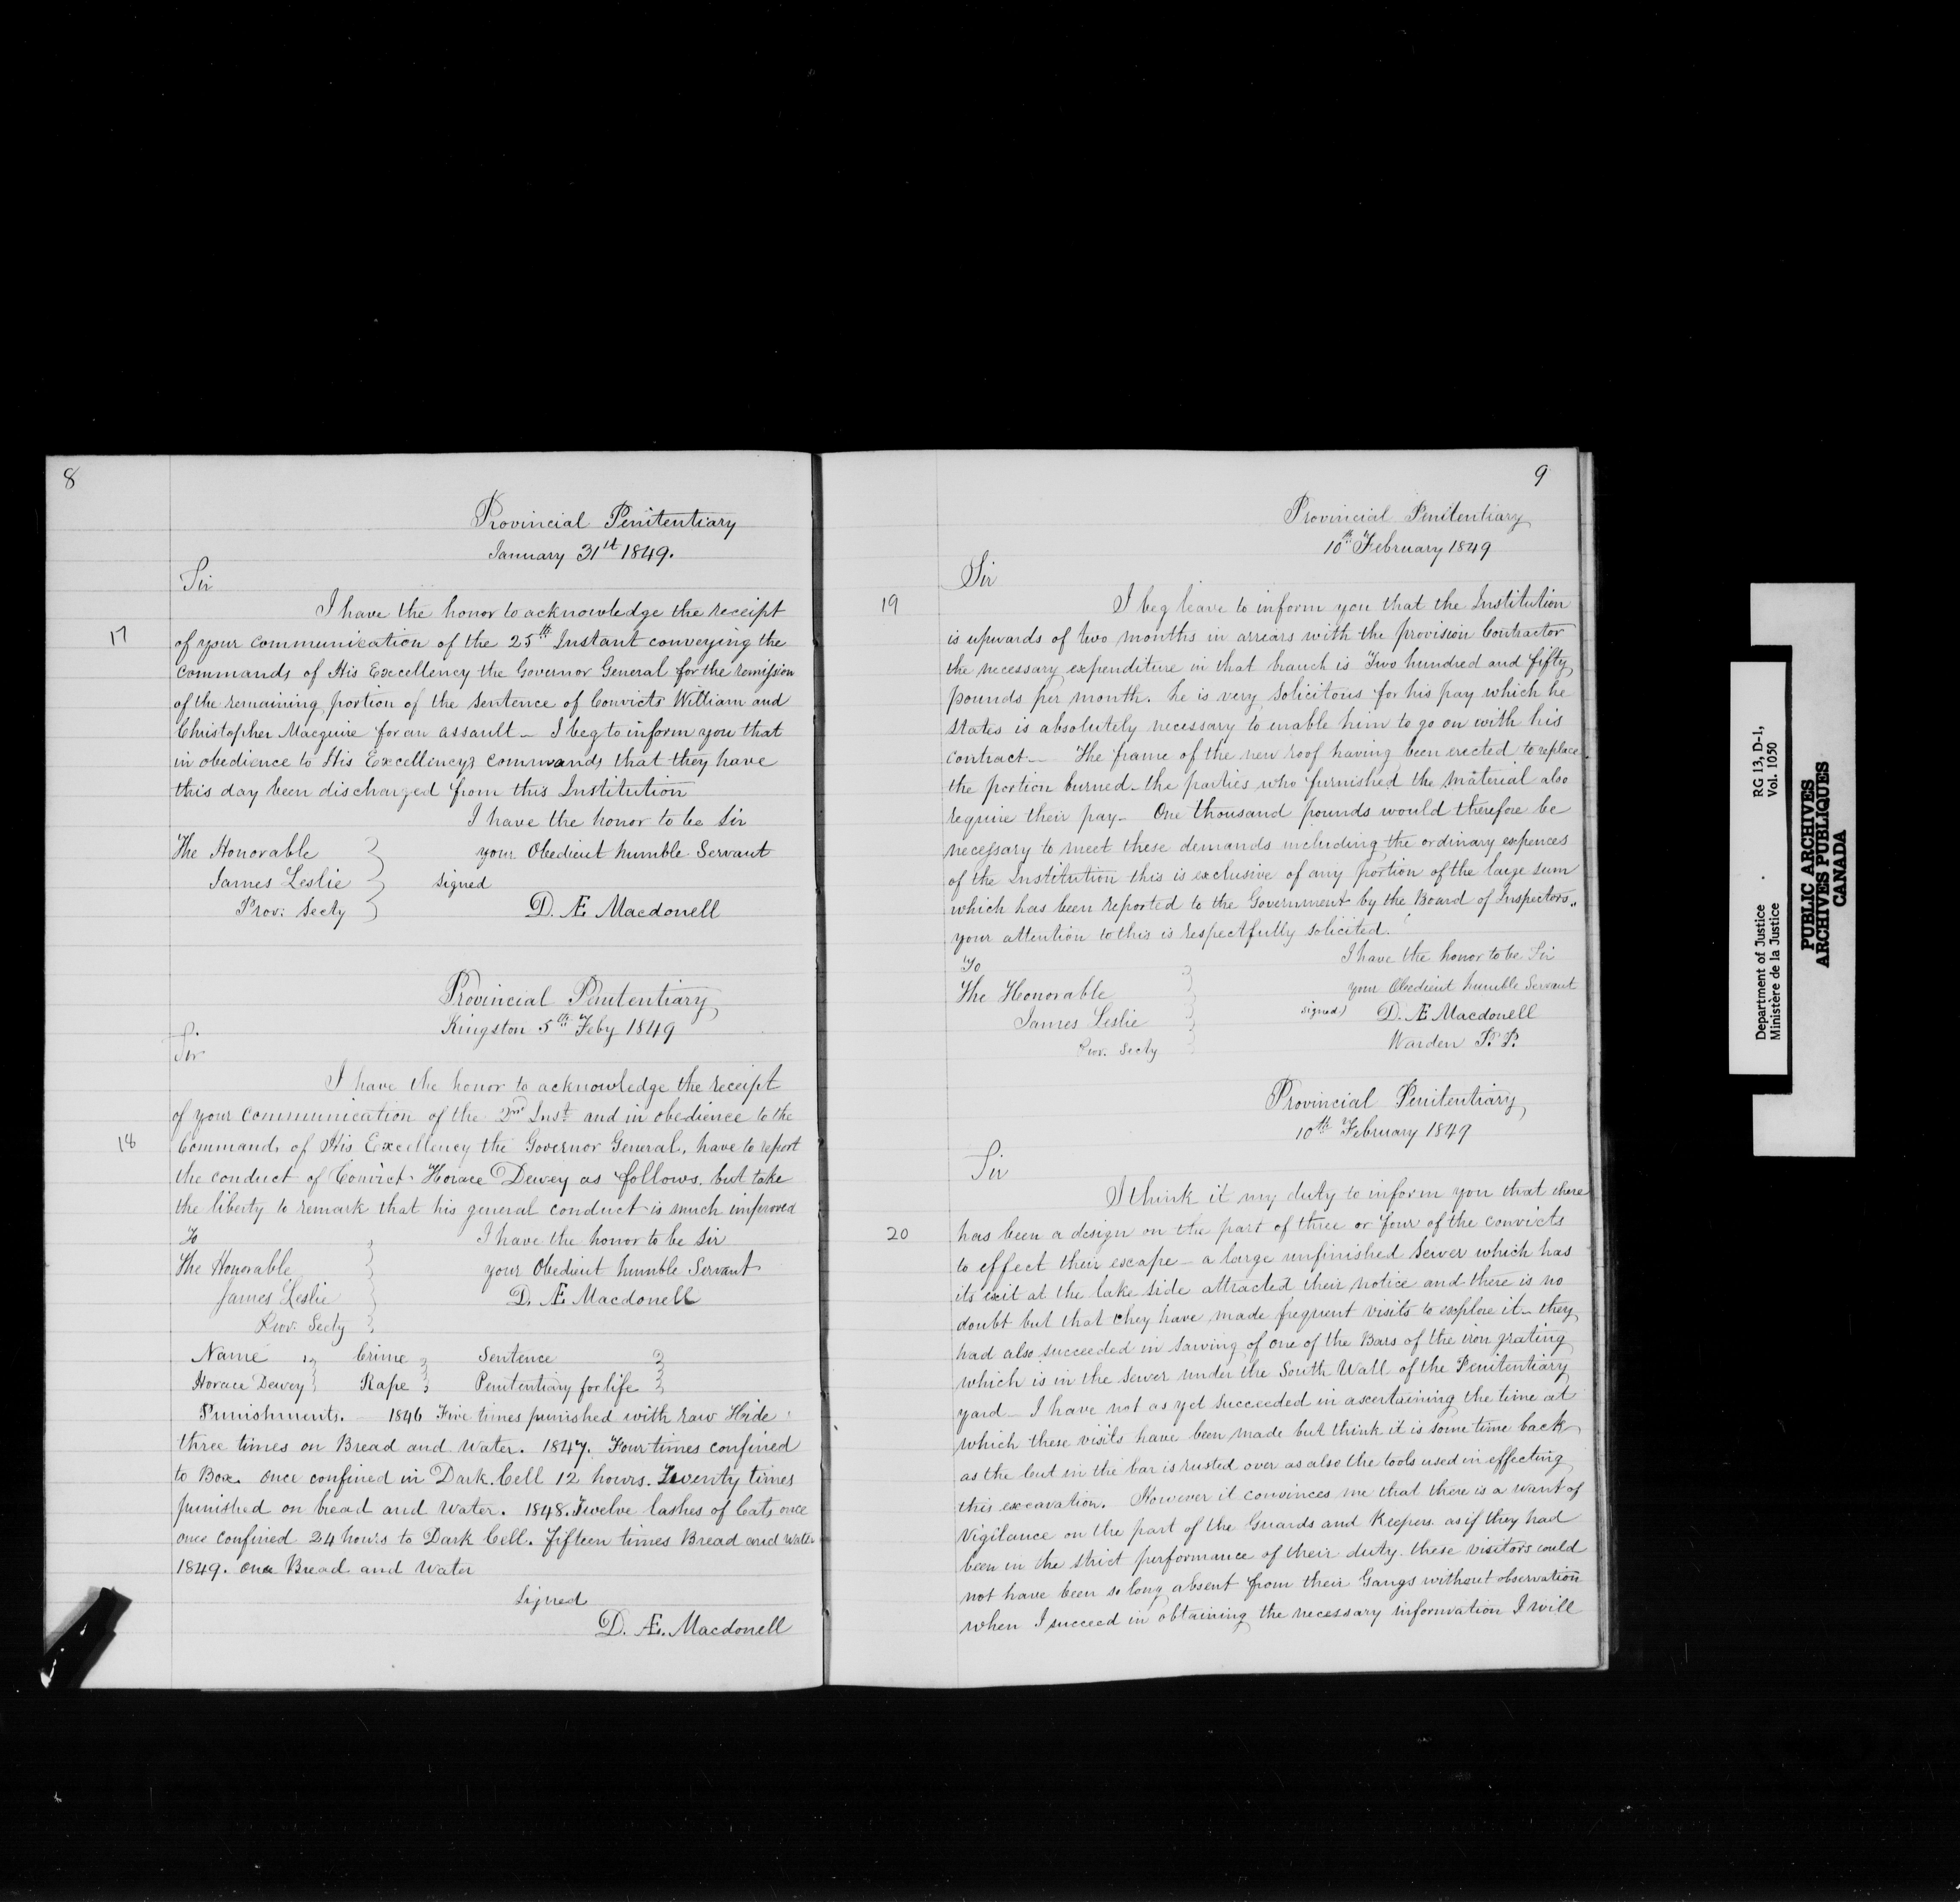 8
Provincial Penitentiary
January 31st 1849.
Sir
I have the honor to acknowledge the receipt
17
of your communication of the 25th Instant conveying the
commands of His Excellency the Governor General for the remission
of the remaining portion of the sentence of Convicts William and
Christopher Macguire for an assault – I beg to inform you that
in obedience to His Excellencys commands that they have
this day been discharged from this Institution
I have the honor to be Sir
The Honorable
your Obedient humble Servant
James Leslie
signed
Prov: Secty
D. Æ Macdonell
Provincial Penitentiary
Kingston 5th Feby 1849
Sir
I have the honor to acknowledge the receipt
of your communication of the 2nd Inst and in obedience to the
18
Commands of His Excellency the Governor General, have to report
the conduct of Convict Horace Dewey as follows. but take
the liberty to remark that his general conduct is much improved
To
I have the honor to be Sir
The Honorable
your Obedient humble Servant
James Leslie
D. Æ Macdonell
Prov. Secty
Name Crime Sentence
Horace Dewey Rape Penitentiary for life
Punishments. 1846 Five times punished with raw Hide
three times on Bread and Water. 1847. Four times confined
to Box. once confined in Dark Cell 12 hours. Twenty times
punished on bread and water. 1848. Twelve lashes of Cats once
once confined 24 hours to Dark Cell. Fifteen times Bread and Water
1849. once Bread and Water
signed
D. Æ. Macdonell
9
Provincial Penitentiary
10th February 1849
Sir
19
I beg leave to inform you that the Institution
is upwards of two months in arriars with the provision Contractor
the necessary expenditure in that branch is Two hundred and fifty
pounds per month. he is very solicitous for his pay which he
states is absolutely necessary to enable him to go on with his
contract – The frame of the new roof having been erected to replace
the portion burned – the parties who furnished the material also
require their pay – One thousand pounds would therefore be
necessary to meet these demands including the ordinary expences
of the Institution this is exclusive of any portion of the large sum
which has been reported to the Government by the Board of Inspectors..
your attention to this is respectfully solicited.
To
I have the honor to be Sir
The Honorable
your Obedient humble Servant
James Leslie
signed) D. Æ Macdonell
Prov. Secty
Warden P. P.
Provincial Penitentiary
10th February 1849
Sir
I think it my duty to inform you that there
20
has been a design on the part of three or four of the convicts
to effect their escape – a large unfinished sewer which has
its exit at the lake side attracted their notice and there is no
doubt but that they have made frequent visits to explore it – they
had also succeeded in sawing of one of the Bars of the iron grating
which is in the sewer under the South Wall of the Penitentiary
yard – I have not as yet succeeded in ascertaining the time at
which these visits have been made but think it is some time back
as the cut in the bar is rusted over as also the tools used in effecting
this excavation. However it convinces me that there is a want of
vigilance on the part of the Guards and Keepers as if they had
been in the strict performance of their duty. these visitors could
not have been so long absent from their Gangs without observation
when I succeed in obtaining the necessary information I will
Department of Justice RG 13, D-1,
Ministère de la Justice Vol. 1050
PUBLIC ARCHIVES
ARCHIVES PUBLIQUES
CANADA